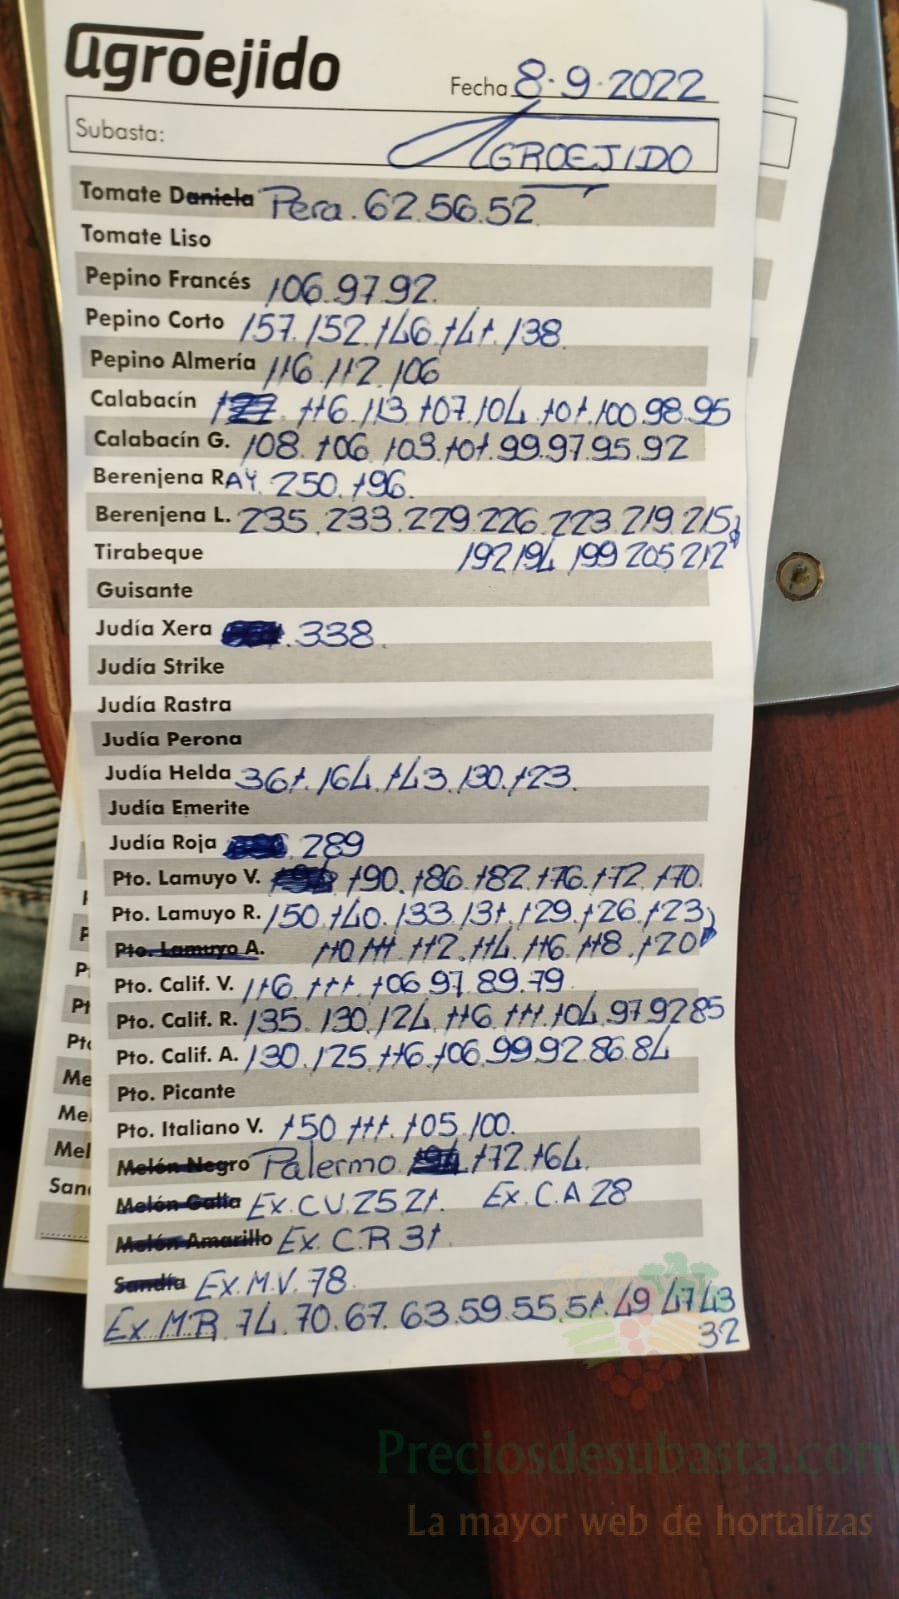 agroejido
Fecha 8-9-2022
Subasta: AGROEJIDO
Tomate Daniela Pera. 62.56.52
Tomate Liso
Pepino Francés 106.97.92.
Pepino Corto 157.152.146.141.138.
Pepino Almería 116.112.106
Calabacín 116.113.107.104.101.100.98.95
Calabacín G. 108.106.103.101.99.97.95.92
Berenjena RAY. 250.196.
Berenjena L. 235.233.229.226.223.219.215
Tirabeque 192 194 199 205 212
Guisante
Judía Xera .338.
Judía Strike
Judía Rastra
Judía Perona
Judía Helda 361.164.143.130.123.
Judía Emerite
Judía Roja .289
Pto. Lamuyo V. 190.186.182.176.172.170.
Pto. Lamuyo R. 150.140.133.131.129.126.123
Pto. Lamuyo A. 110.111.112.114.116.118.120
Pto. Calif. V. 116.111.106.97.89.79
Pto. Calif. R. 135.130.124.116.111.104.97 92 85
Pto. Calif. A. 130.125.116.106.99.92.86.84
Pto. Picante
Pto. Italiano V. 150.111.105.100.
Melón Negro Palermo 172.164.
Melón Galia Ex.C.V.25.21. Ex.C.A 28
Melón Amarillo Ex.C.R 31.
Sandía Ex.M.V.78
Ex.M.R. 74.70.67.63.59.55.51.49 47 43
32
Preciosdesubasta.com
La mayor web de hortalizas